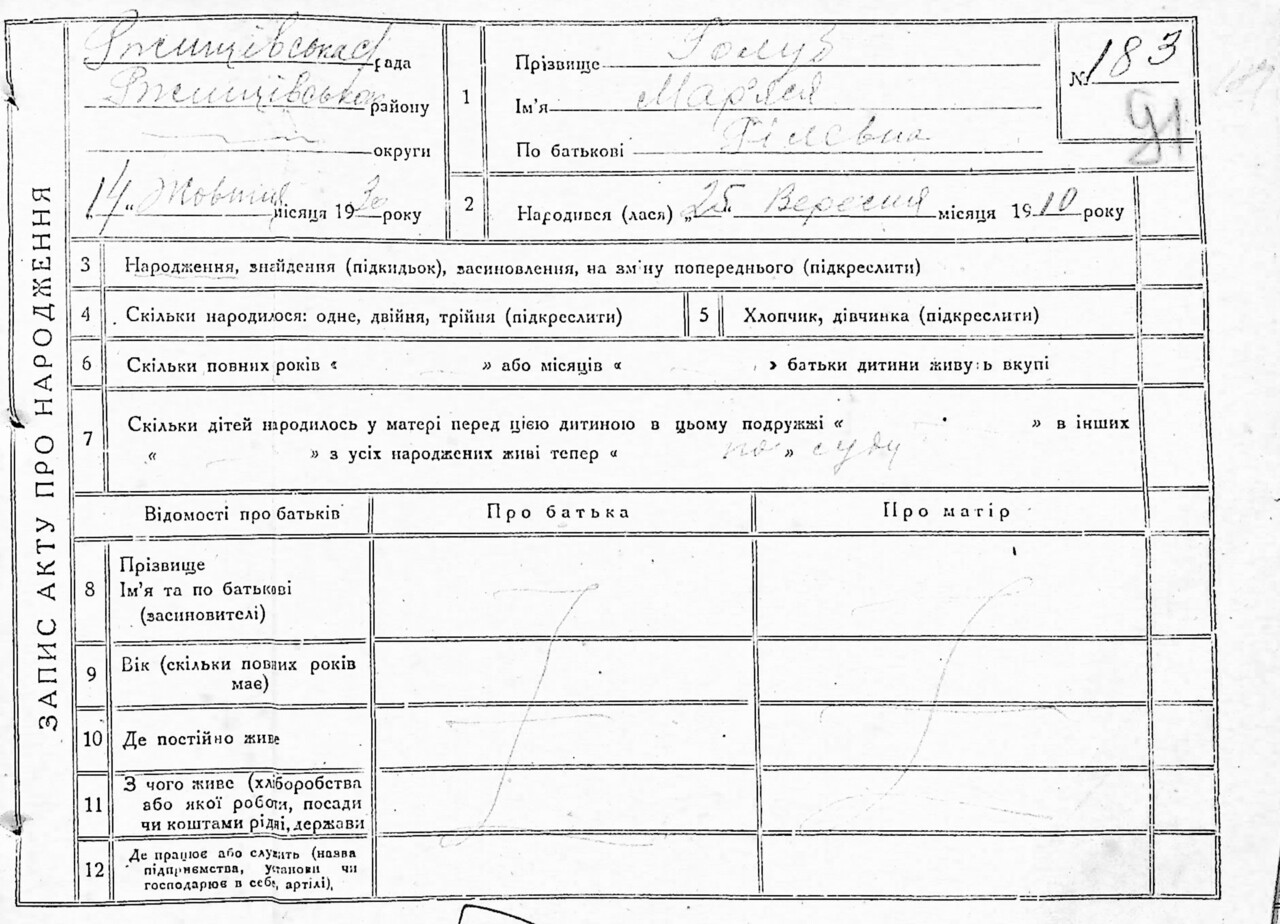 ЗАПИС АКТУ ПРО НАРОДЖЕННЯ
Ржищівська рада
Ржищівського району
округи
„14“ Жовтня місяця 1930 року
1
Прізвище Голуб
Ім'я
По батькові
№ 183
91
2
Народився (лася) „25“ Вересня місяця 1910 року
3 Народження, знайдення (підкидьок), засиновлення, на зміну попереднього (підкреслити)
4 Скільки народилося: одне, двійня, трійня (підкреслити)
5 Хлопчик, дівчинка (підкреслити)
6 Скільки повних років « » або місяців « » батьки дитини живуть вкупі
7 Скільки дітей народилось у матері перед цією дитиною в цьому подружжі « » в інших
« » з усіх народжених живі тепер « » по суду
Відомості про батьків
Про батька
Про матір
8 Прізвище
Ім'я та по батькові
(засиновителі)
9 Вік (скільки повних років
має)
10 Де постійно живе
11 З чого живе (хліборобства
або якої роботи, посади
чи коштами рідні, держави
12 Де працює або служить (назва
підприємства, установи чи
господарює в себе, артілі),